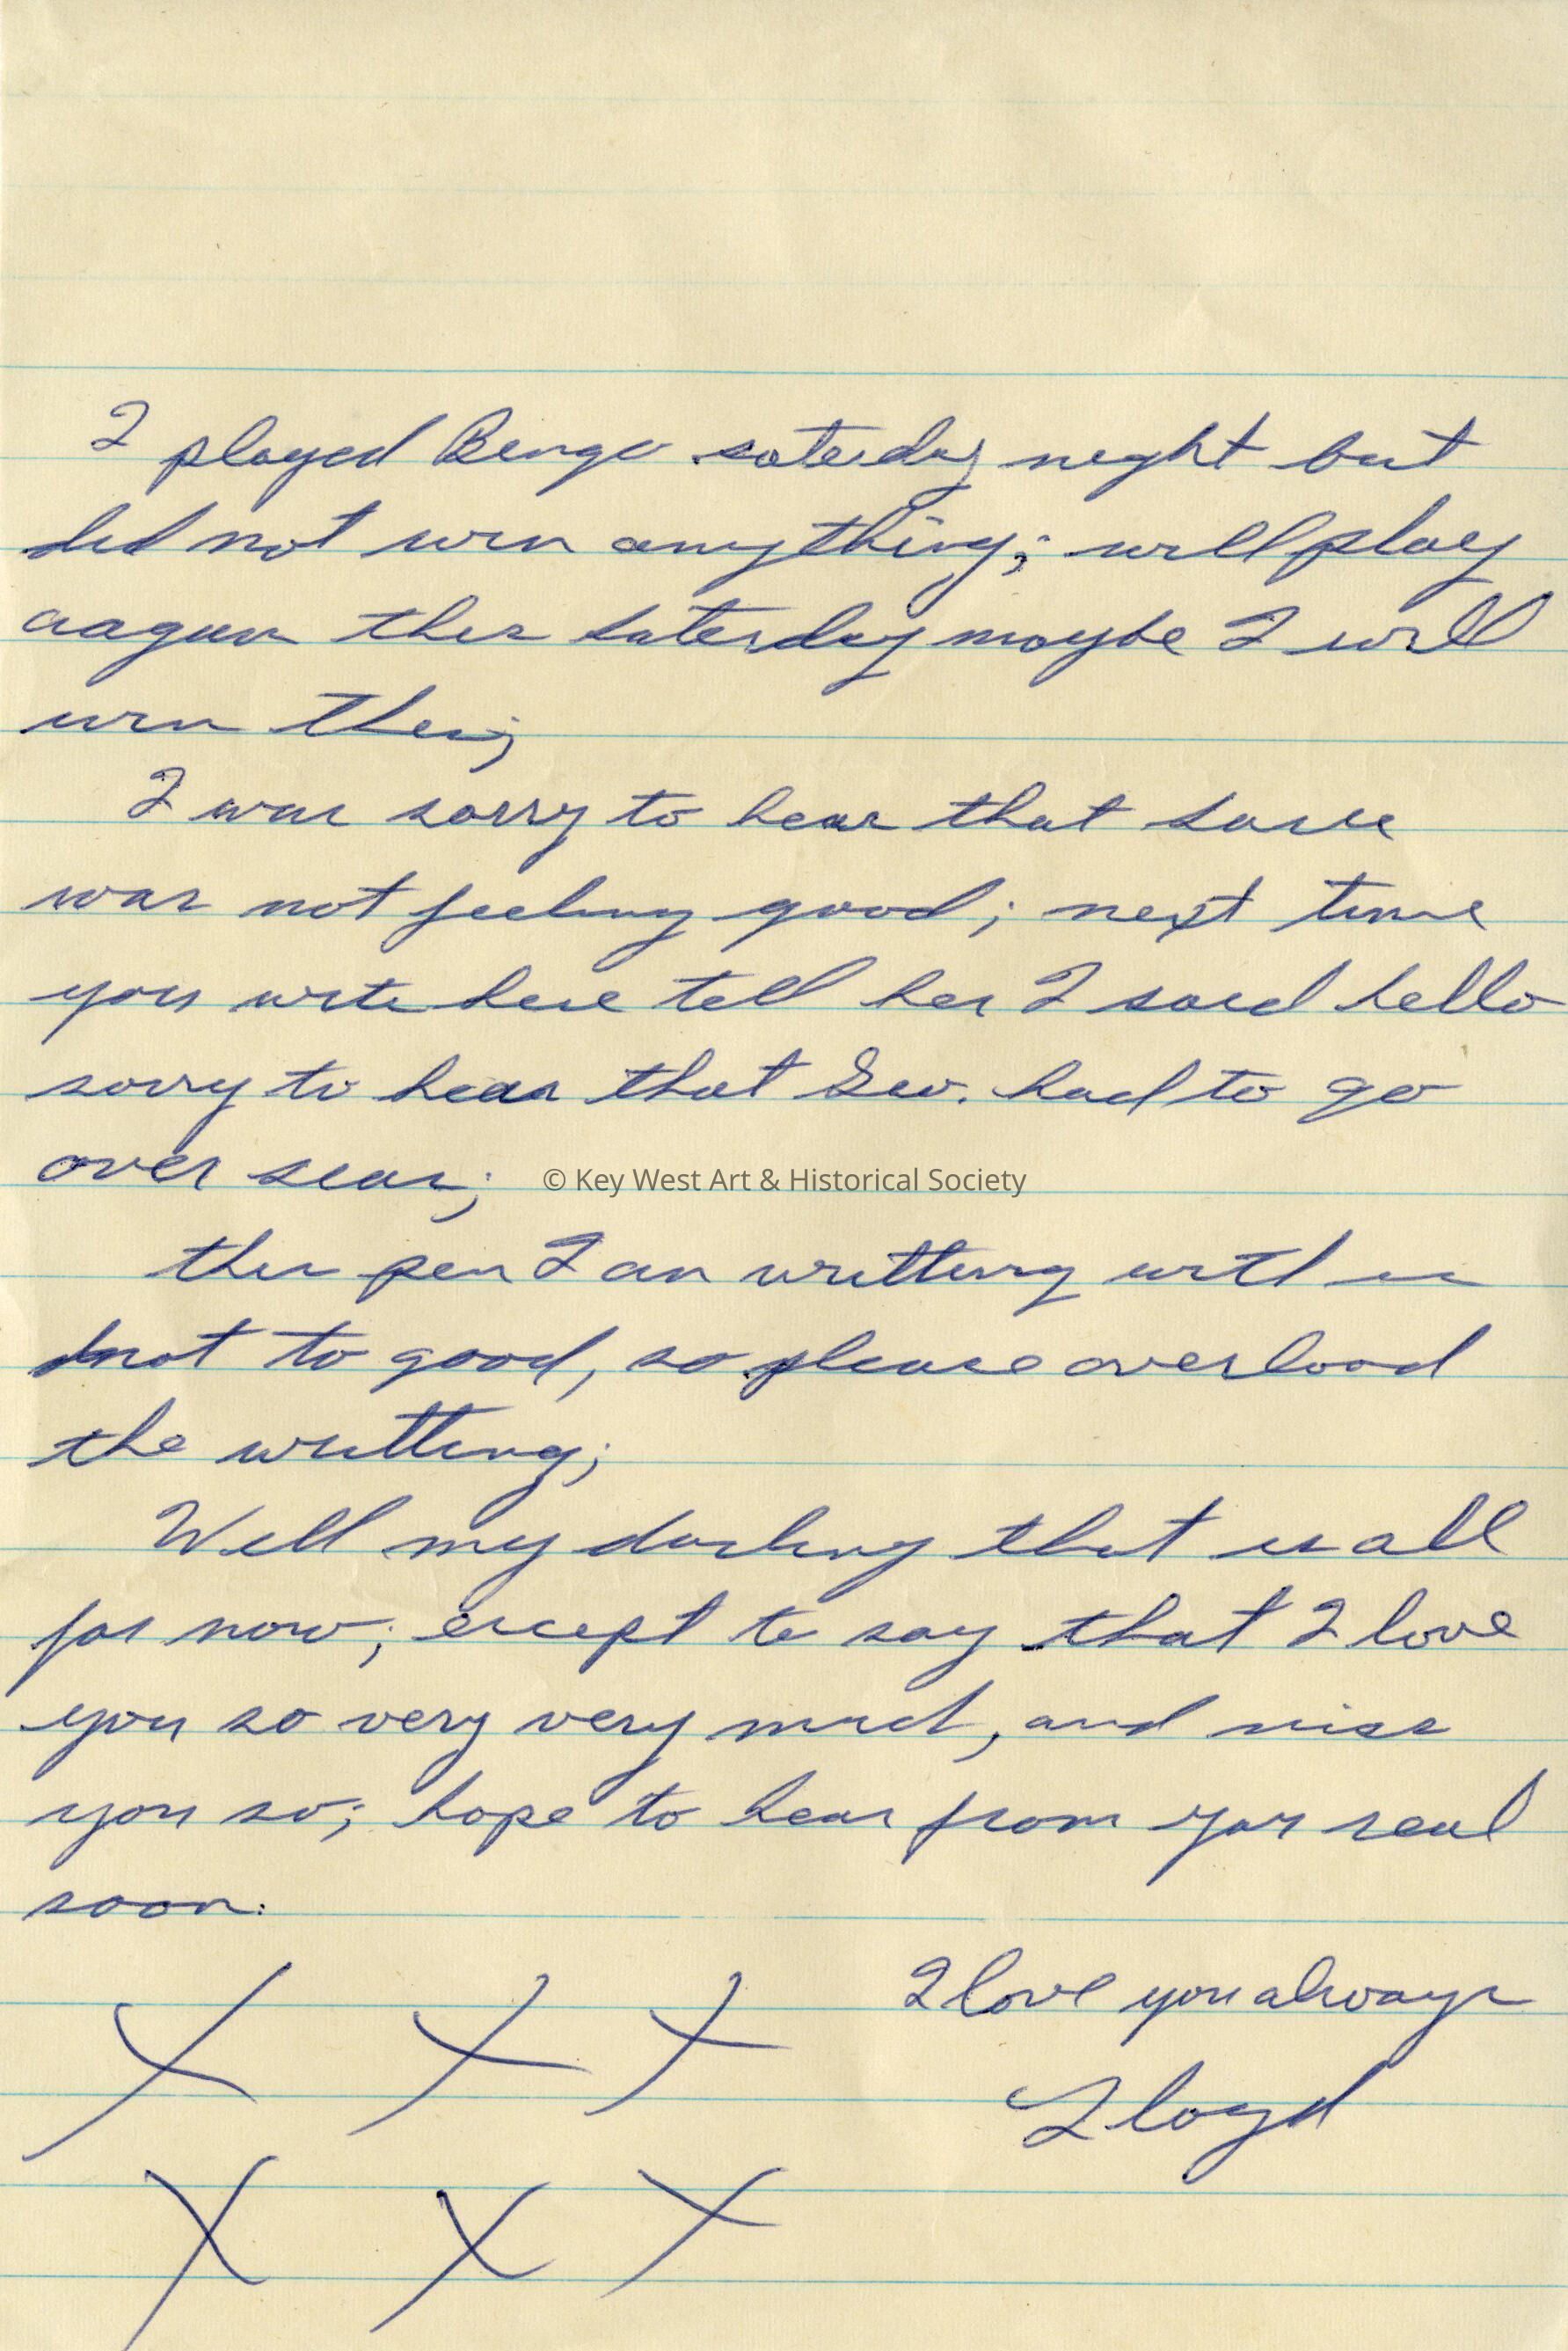 I played Bingo saterday night but
did not win anything; will play
aagin this saterday maybe I will
win then;
I was sorry to hear that
was not feeling good; next time
you write here tell her I said hello
sorry to hear that Geo. had to go
over seas;
© Key West Art & Historical Society
this pen I an writting with is
not to good, so please overlood
the writting;
Well my darling that is all
for now; except to say that I love
you so very very much, and miss
you so; hope to hear from you real
soon.
I love you always
Lloyd
X X X
X X X